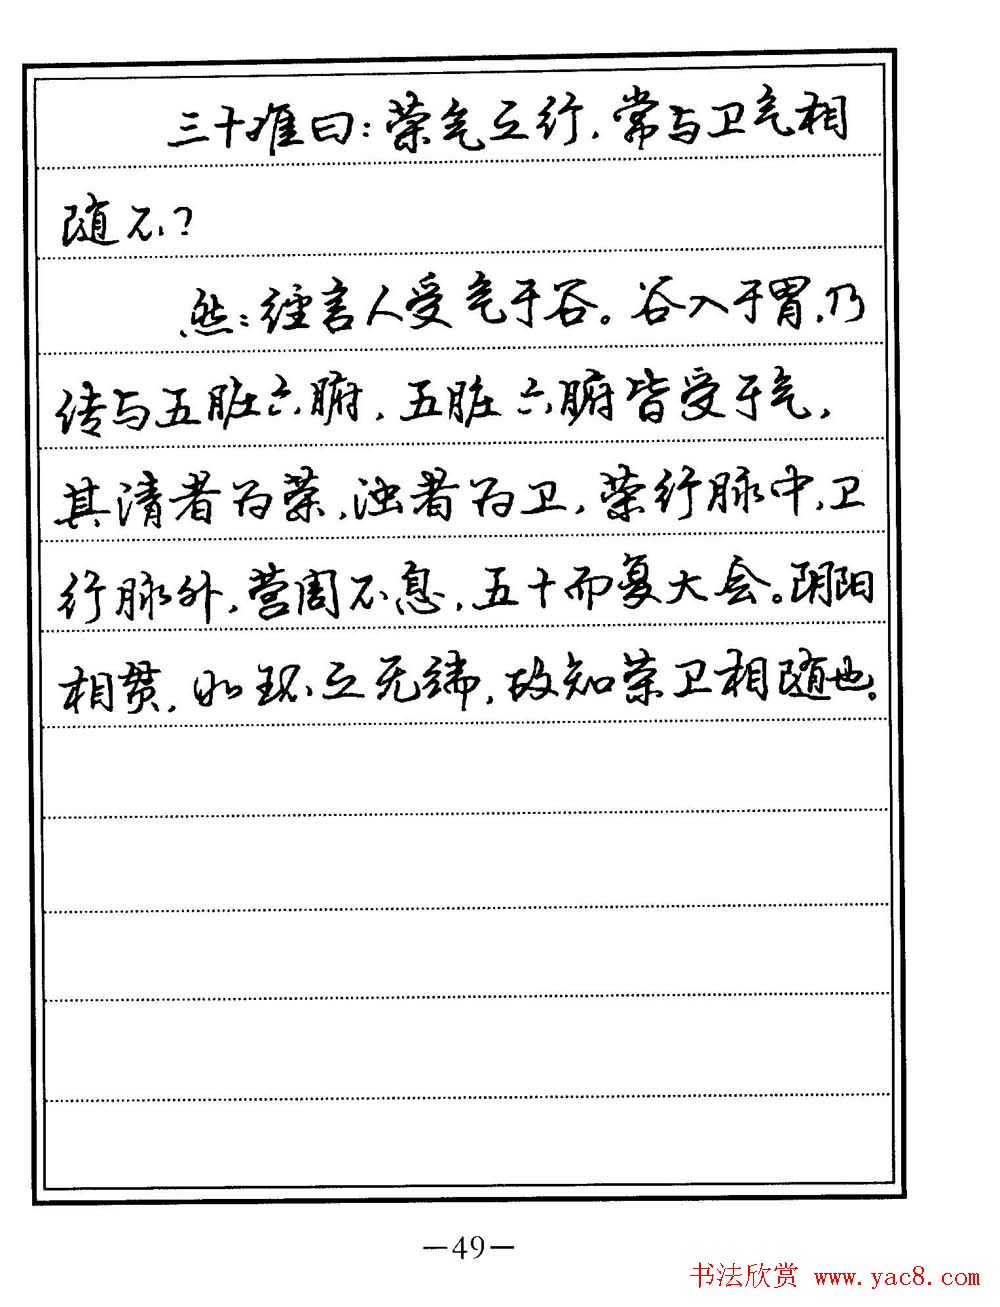 三十难曰:荣气之行,常与卫气相
随不?
然:经言人受气于谷。谷入于胃,乃
传与五脏六腑,五脏六腑皆受于气,
其清者为荣,浊者为卫,荣行脉中,卫
行脉外,营周不息,五十而复大会。阴阳
相贯,如环之无端,故知荣卫相随也。
—49—
书法欣赏 www.yac8.com